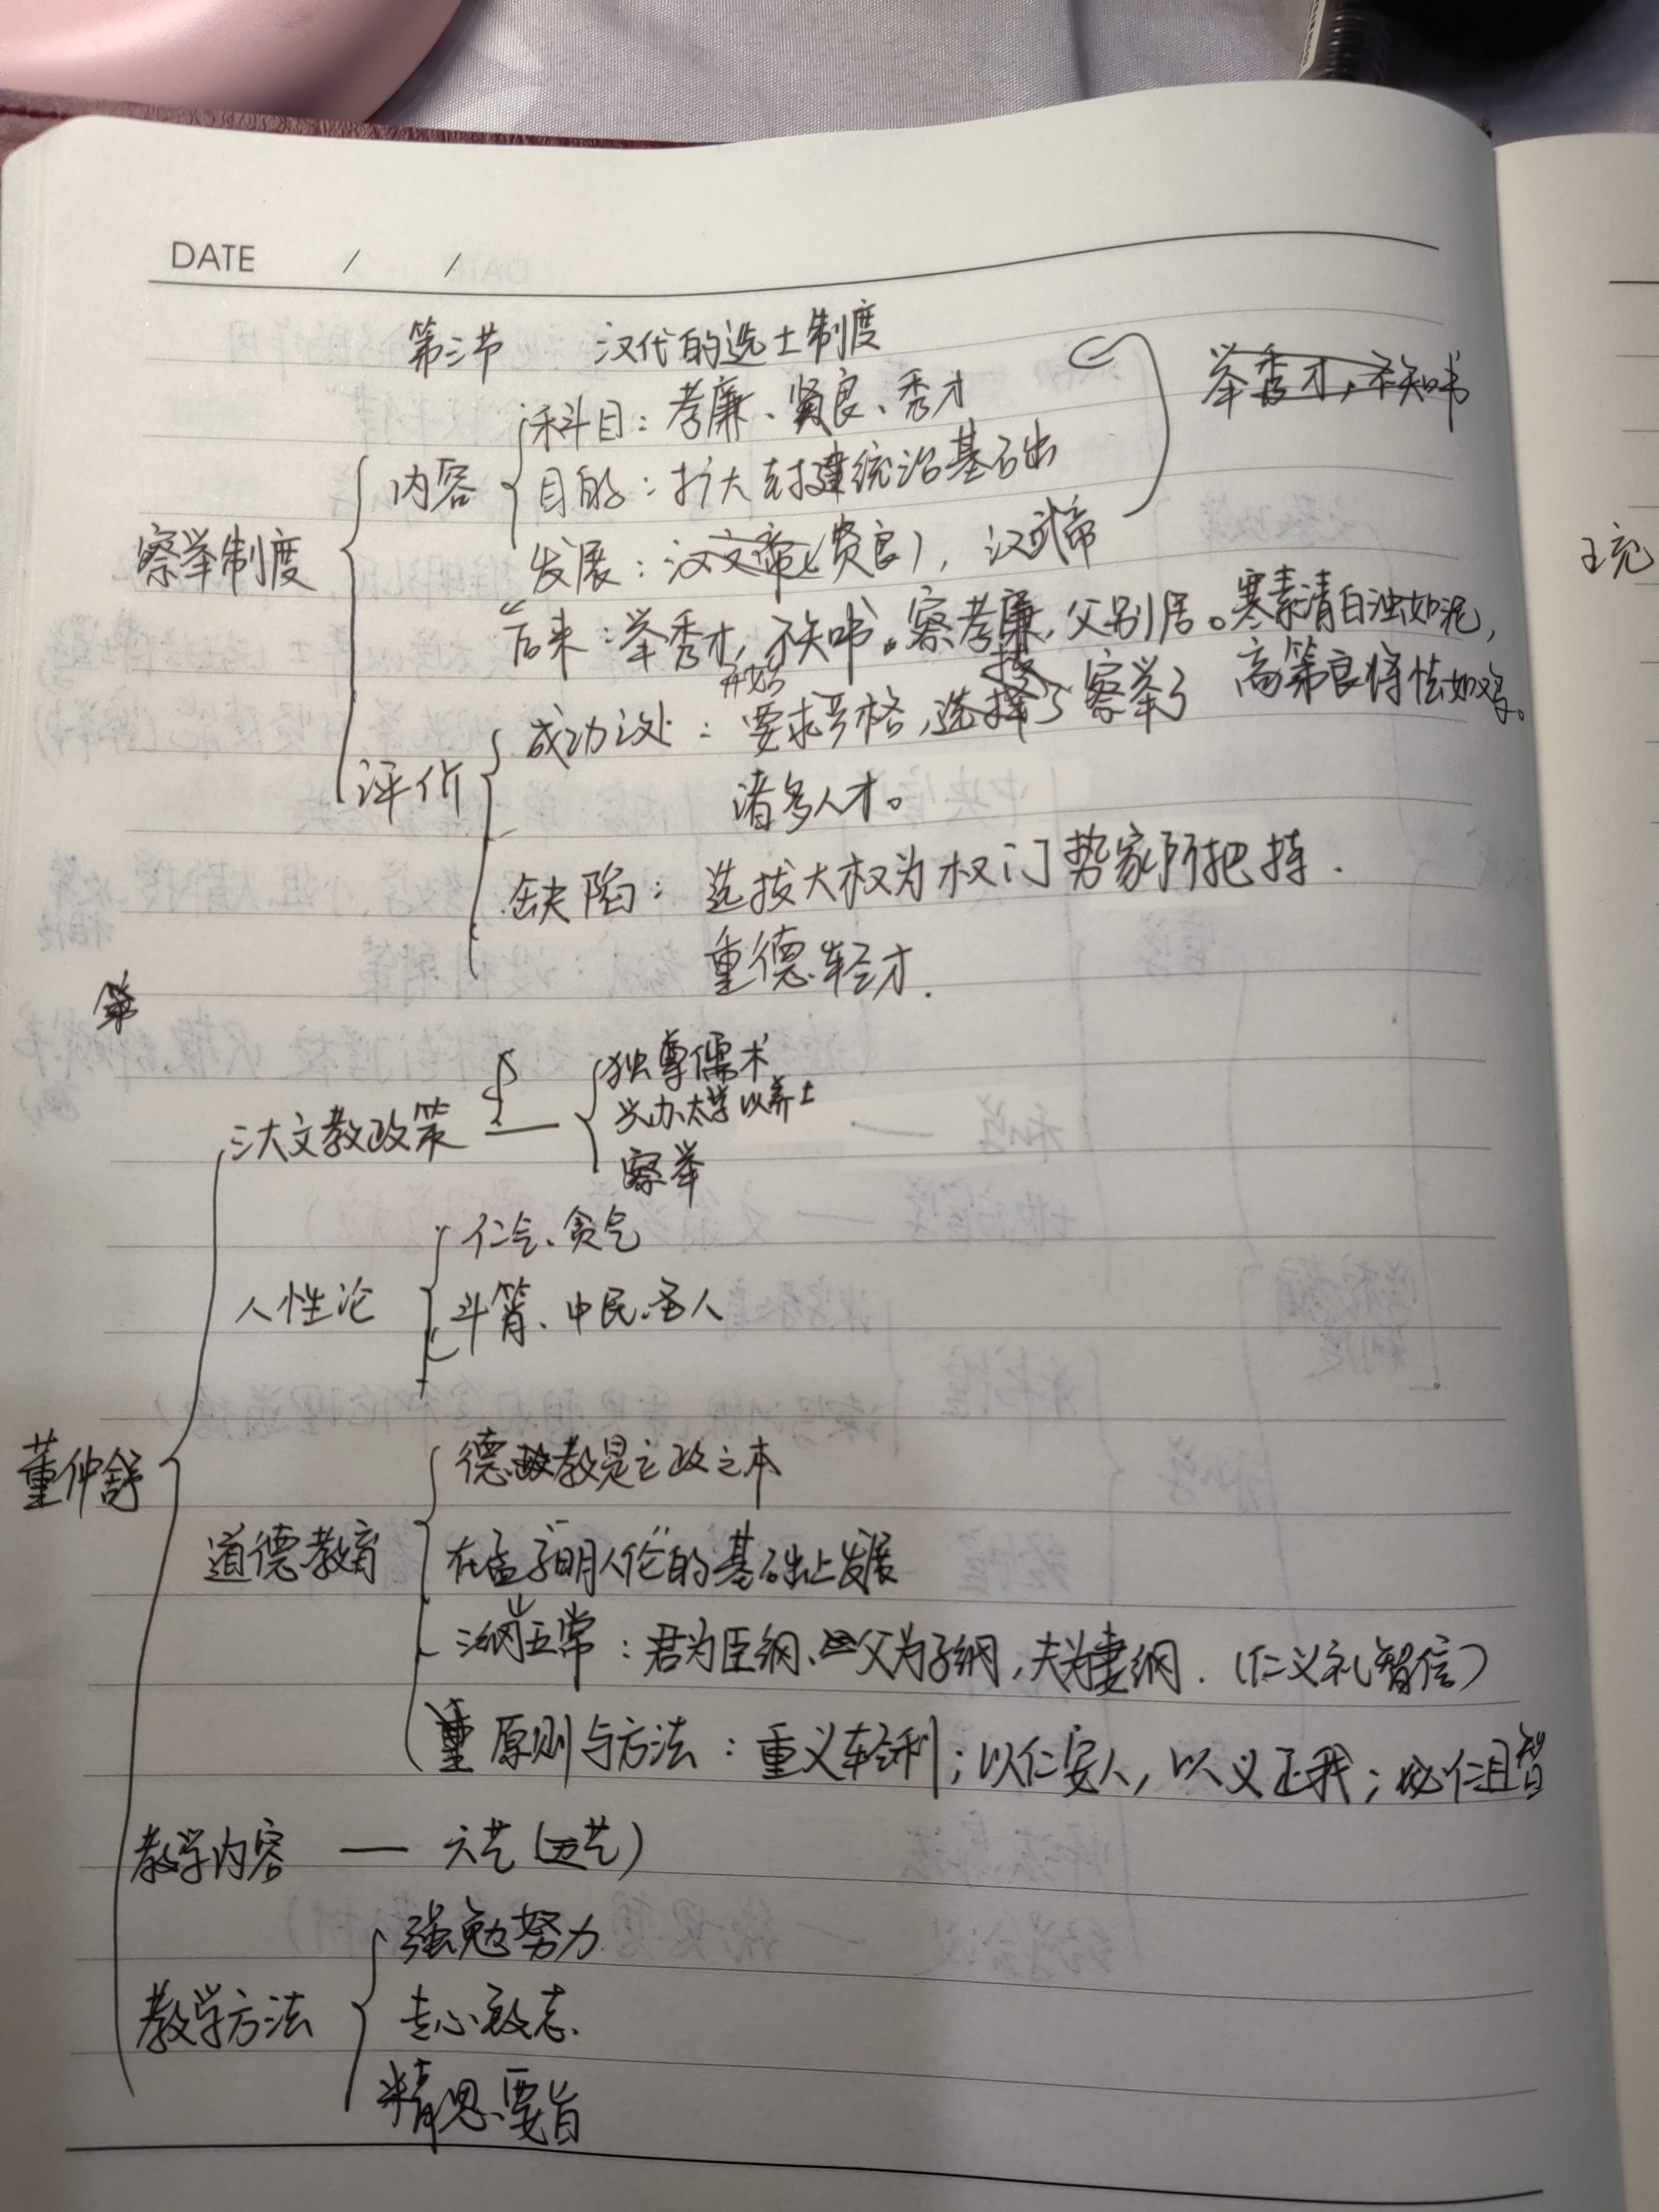 DATE / /
第三节 汉代的选士制度
科目：孝廉、贤良、秀才
举秀才，不知书
内容
目的：扩大封建统治基础
察举制度
发展：汉文帝（贤良），汉武帝
王充
后来：举秀才，不知书。察孝廉，父别居。寒素清白浊如泥，
高第良将怯如鸡。
开始
成功之处：要求严格，选择了察举了
诸多人才。
评价
缺陷：选拔大权为权门势家所把持.
重德轻才.
第
独尊儒术
三大文教政策 — 兴办太学以养士
察举
仁气、贪气
人性论
斗筲、中民、圣人
董仲舒
德教是立政之本
道德教育
在孟子"明人伦"的基础上发展
三纲五常：君为臣纲、父为子纲，夫为妻纲.（仁义礼智信）
原则与方法：重义轻利；以仁安人，以义正我；必仁且智
教学内容 — 六艺（五艺）
强勉努力
教学方法
专心致志
精思要旨